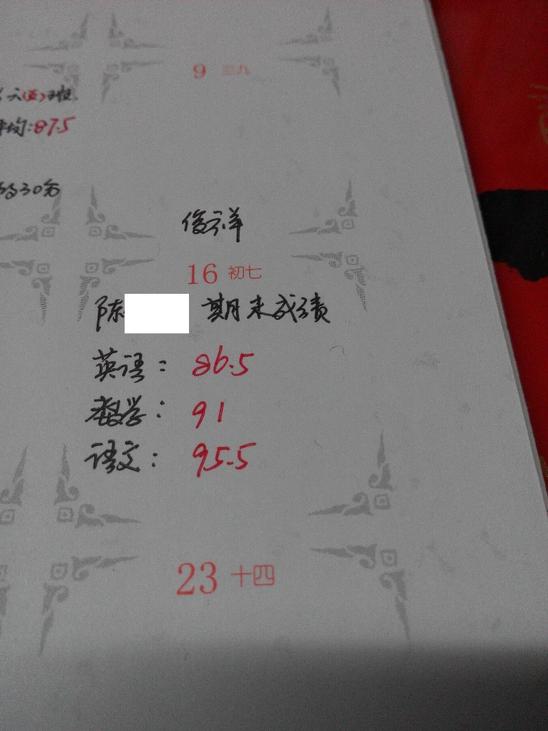 9 三九
六(五)班
平均:87.5
30分
俊祥
16 初七
陈 期末成绩
英语: 86.5
数学: 91
语文: 95.5
23 十四